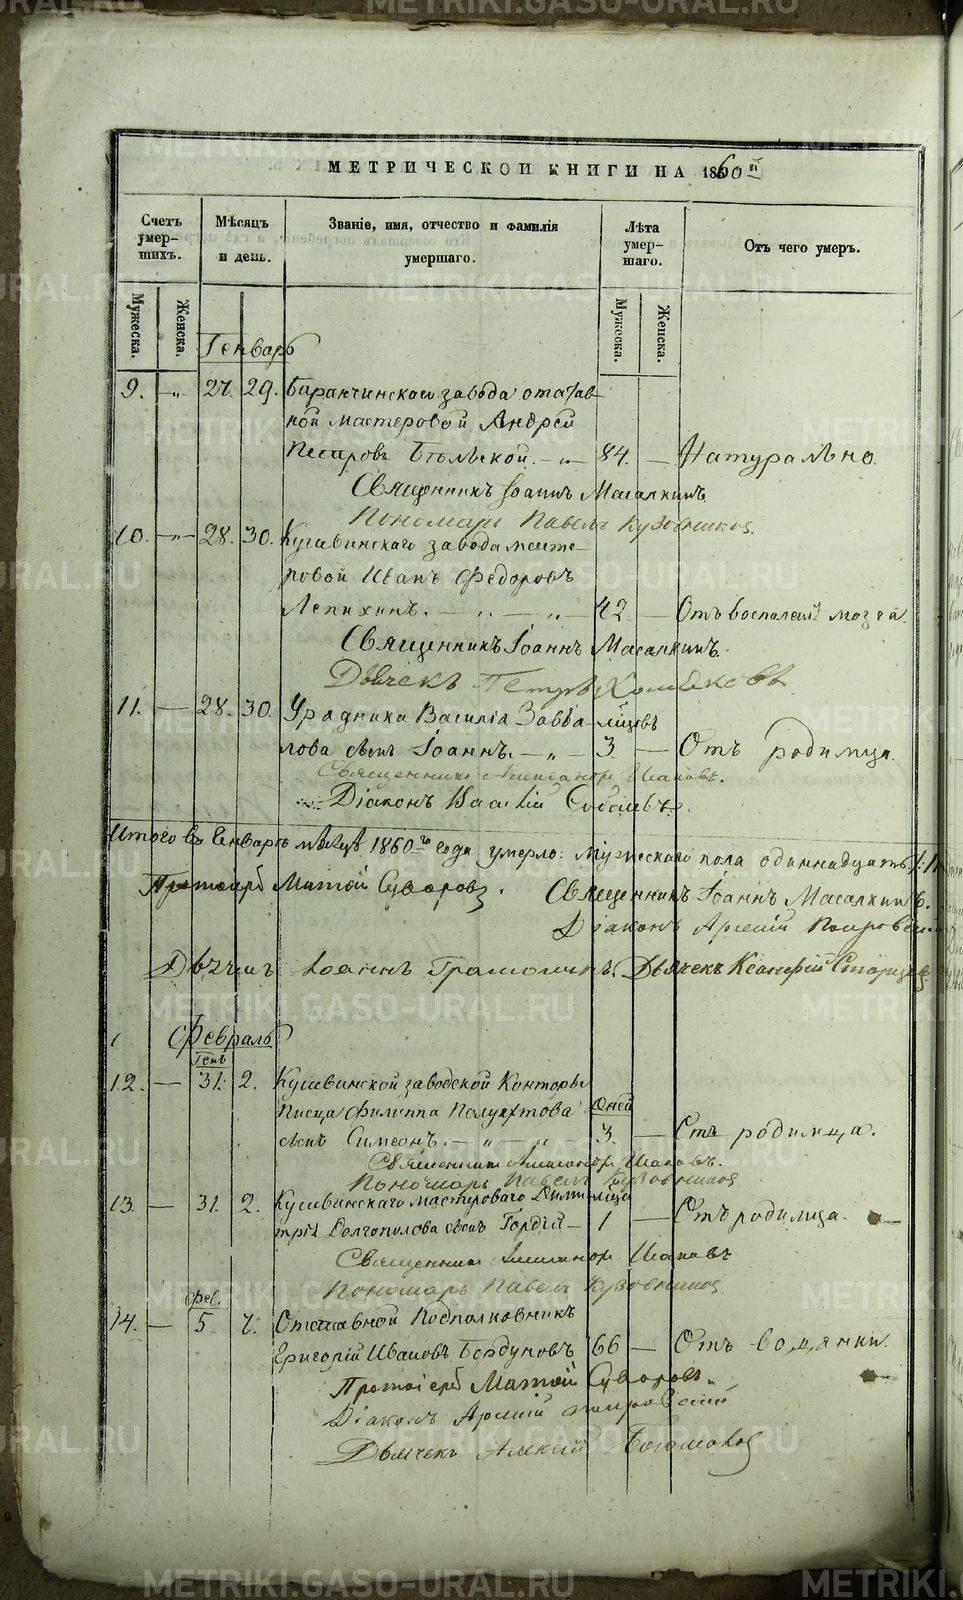 МЕТРИЧЕСКОЙ КНИГИ НА 1860й
Счетъ умер-шихъ.
Мѣсяцъ и день.
Званіе, имя, отчество и фамилія умершаго.
Лѣта умер-шаго.
Отъ чего умеръ.
Мужеска. Женска.
Мужеска. Женска.
Генварь
9. „ 27. 29. Баранчинскаго завода отстав-
ной мастеровой Андрей
Бѣльской. 84. — Натурально.
Священникъ Іоаннъ Масалкинъ
Пономарь Павелъ Кузовниковъ
10. „ 28. 30. Кушвинскаго завода масте-
ровой Иванъ Федоровъ
Лепихинъ. 42 — Отъ воспаленій мозга.
Священникъ Іоаннъ Масалкинъ.
Дьячекъ Петръ Хомяковъ
11. — 28. 30. Урядника Василія
лова сынъ Іоаннъ. 3 — Отъ родимца.
Священникъ Александръ
Діаконъ Василій
Итого въ Генварѣ мѣсяцѣ 1860го года умерло: Мужескаго пола одиннадцать
Протоіерей Матѳій Суворовъ. Священникъ Іоаннъ Масалкинъ.
Діаконъ Арсеній
Дьячекъ Іоаннъ Дьячекъ
Февраль
Ген.
12. — 31. 2. Кушвинской заводской Конторы
Писца Филиппа Полуяхтова дней
сынъ Симеонъ. 3. — Отъ родимца.
Священникъ Александръ
Пономарь Павелъ Кузовниковъ
13. — 31. 2. Кушвинскаго мастероваго Дими-
трія Долгополова сынъ Гордій 1 — Отъ родимца.
Священникъ Александръ
Пономарь Павелъ Кузовниковъ
Фев.
14. — 5 7. Отставной Подполковникъ
Григорій Ивановъ 66 — Отъ водянки.
Протоіерей Матѳій Суворовъ.
Діаконъ Арсеній
Дьячекъ Алексій
METRIKI.GASO-URAL.RU